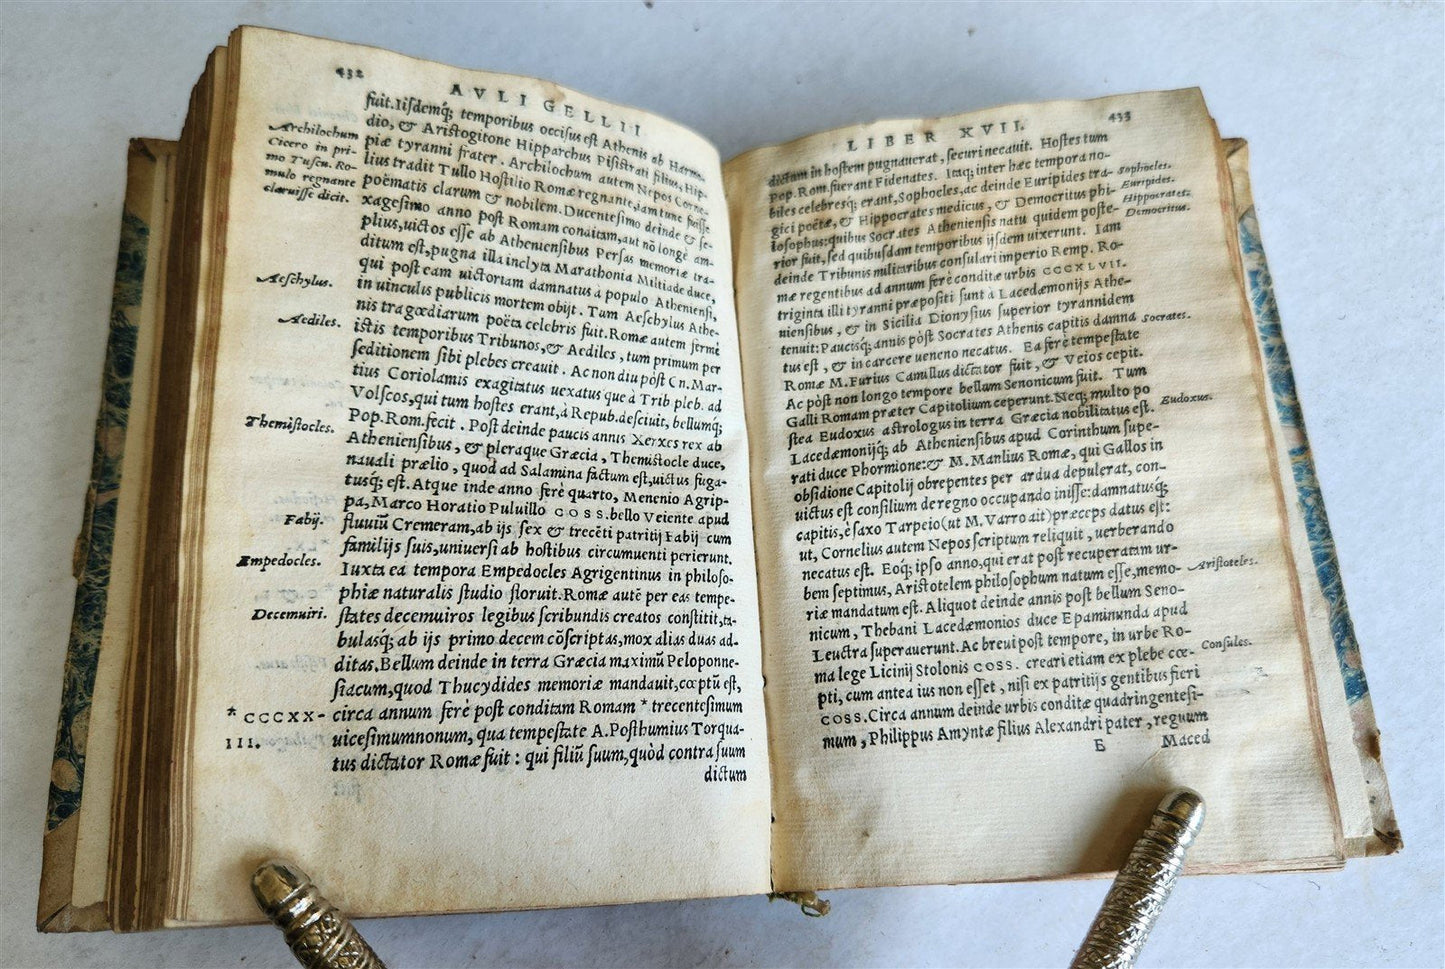 432
AVLI GELLII
fuit. Iisdemq́; temporibus occisus est Athenis ab Harmo-
dio, & Aristogitone Hipparchus Pisistrati filius, Hip-
piæ tyranni frater. Archilochum autem Nepos Corne-
lius tradit Tullo Hostilio Romæ regnante, iam tunc fuisse
poëmatis clarum & nobilem. Ducentesimo deinde & se-
xagesimo anno post Romam conditam, aut nō longè am-
plius, uictos esse ab Atheniensibus Persas memoriæ tra-
ditum est, pugna illa inclyta Marathonia Miltiade duce,
qui post eam uictoriam damnatus à populo Atheniensi,
in uinculis publicis mortem obijt. Tum Aeschylus Athe-
nis tragœdiarum poëta celebris fuit. Romæ autem fermè
istis temporibus Tribunos, & Aediles, tum primum per
seditionem sibi plebes creauit. Ac non diu pòst Cn. Mar-
tius Coriolanus exagitatus uexatusque à Trib pleb. ad
Volscos, qui tum hostes erant, à Repub. desciuit, bellumq́;
Pop. Rom. fecit. Post deinde paucis annis Xerxes rex ab
Atheniensibus, & pleraque Græcia, Themistocle duce,
nauali prælio, quod ad Salamina factum est, uictus fuga-
tusq́; est. Atque inde anno ferè quarto, Menenio Agrip-
pa, Marco Horatio Puluillo COSS. bello Veiente apud
fluuiū Cremeram, ab ijs sex & trecēti patritij Fabij cum
familijs suis, uniuersi ab hostibus circumuenti perierunt.
Iuxta ea tempora Empedocles Agrigentinus in philoso-
phiæ naturalis studio floruit. Romæ autē per eas tempe-
states decemuiros legibus scribundis creatos constitit, ta-
bulasq́; ab ijs primo decem cōscriptas, mox alias duas ad-
ditas. Bellum deinde in terra Græcia maximū Peloponne-
siacum, quod Thucydides memoriæ mandauit, cœptū est,
circa annum ferè post conditam Romam * trecentesimum
uicesimumnonum, qua tempestate A. Posthumius Torqua-
tus dictator Romæ fuit: qui filiū suum, quòd contra suum
dictum
Archilochum
Cicero in pri-
mo Tuscu. Ro-
mulo regnante
claruisse dicit.
Aeschylus.
Aediles.
Themistocles.
Fabij.
Empedocles.
Decemuiri.
* CCCXX-
III.
LIBER XVII.
433
dictum in hostem pugnauerat, securi necauit. Hostes tum
Pop. Rom. fuerant Fidenates. Itaq; inter hæc tempora no-
biles celebresq́; erant, Sophocles, ac deinde Euripides tra-
gici poëtæ, & Hippocrates medicus, & Democritus phi-
losophus: quibus Socrates Atheniensis natu quidem poste-
rior fuit, sed quibusdam temporibus ijsdem uixerunt. Iam
deinde Tribunis militaribus consulari imperio Remp. Ro-
mæ regentibus ad annum ferè conditæ urbis CCCXLVII.
triginta illi tyranni præpositi sunt à Lacedæmonijs Athe-
niensibus, & in Sicilia Dionysius superior tyrannidem
tenuit: Paucisq́; annis pòst Socrates Athenis capitis damna
tus est, & in carcere ueneno necatus. Ea ferè tempestate
Romæ M. Furius Camillus dictator fuit, & Veios cepit.
Ac pòst non longo tempore bellum Senonicum fuit. Tum
Galli Romam præter Capitolium ceperunt. Neq; multo po
stea Eudoxus astrologus in terra Græcia nobilitatus est.
Lacedæmonijq́; ab Atheniensibus apud Corinthum supe-
rati duce Phormione: & M. Manlius Romæ, qui Gallos in
obsidione Capitolij obrepentes per ardua depulerat, con-
uictus est consilium de regno occupando inisse: damnatusq́;
capitis, è saxo Tarpeio (ut M. Varro ait) præceps datus est:
ut, Cornelius autem Nepos scriptum reliquit, uerberando
necatus est. Eoq́; ipso anno, qui erat post recuperatam ur-
bem septimus, Aristotelem philosophum natum esse, memo-
riæ mandatum est. Aliquot deinde annis post bellum Seno-
nicum, Thebani Lacedæmonios duce Epaminunda apud
Leuctra superauerunt. Ac breui post tempore, in urbe Ro-
ma lege Licinij Stolonis COSS. creari etiam ex plebe cœ-
pti, cum antea ius non esset, nisi ex patritijs gentibus fieri
COSS. Circa annum deinde urbis conditæ quadringentesi-
mum, Philippus Amyntæ filius Alexandri pater, regnum
E
Maced
Sophocles.
Euripides.
Hippocrates.
Democritus.
Socrates.
Eudoxus.
Aristoteles.
Consules.